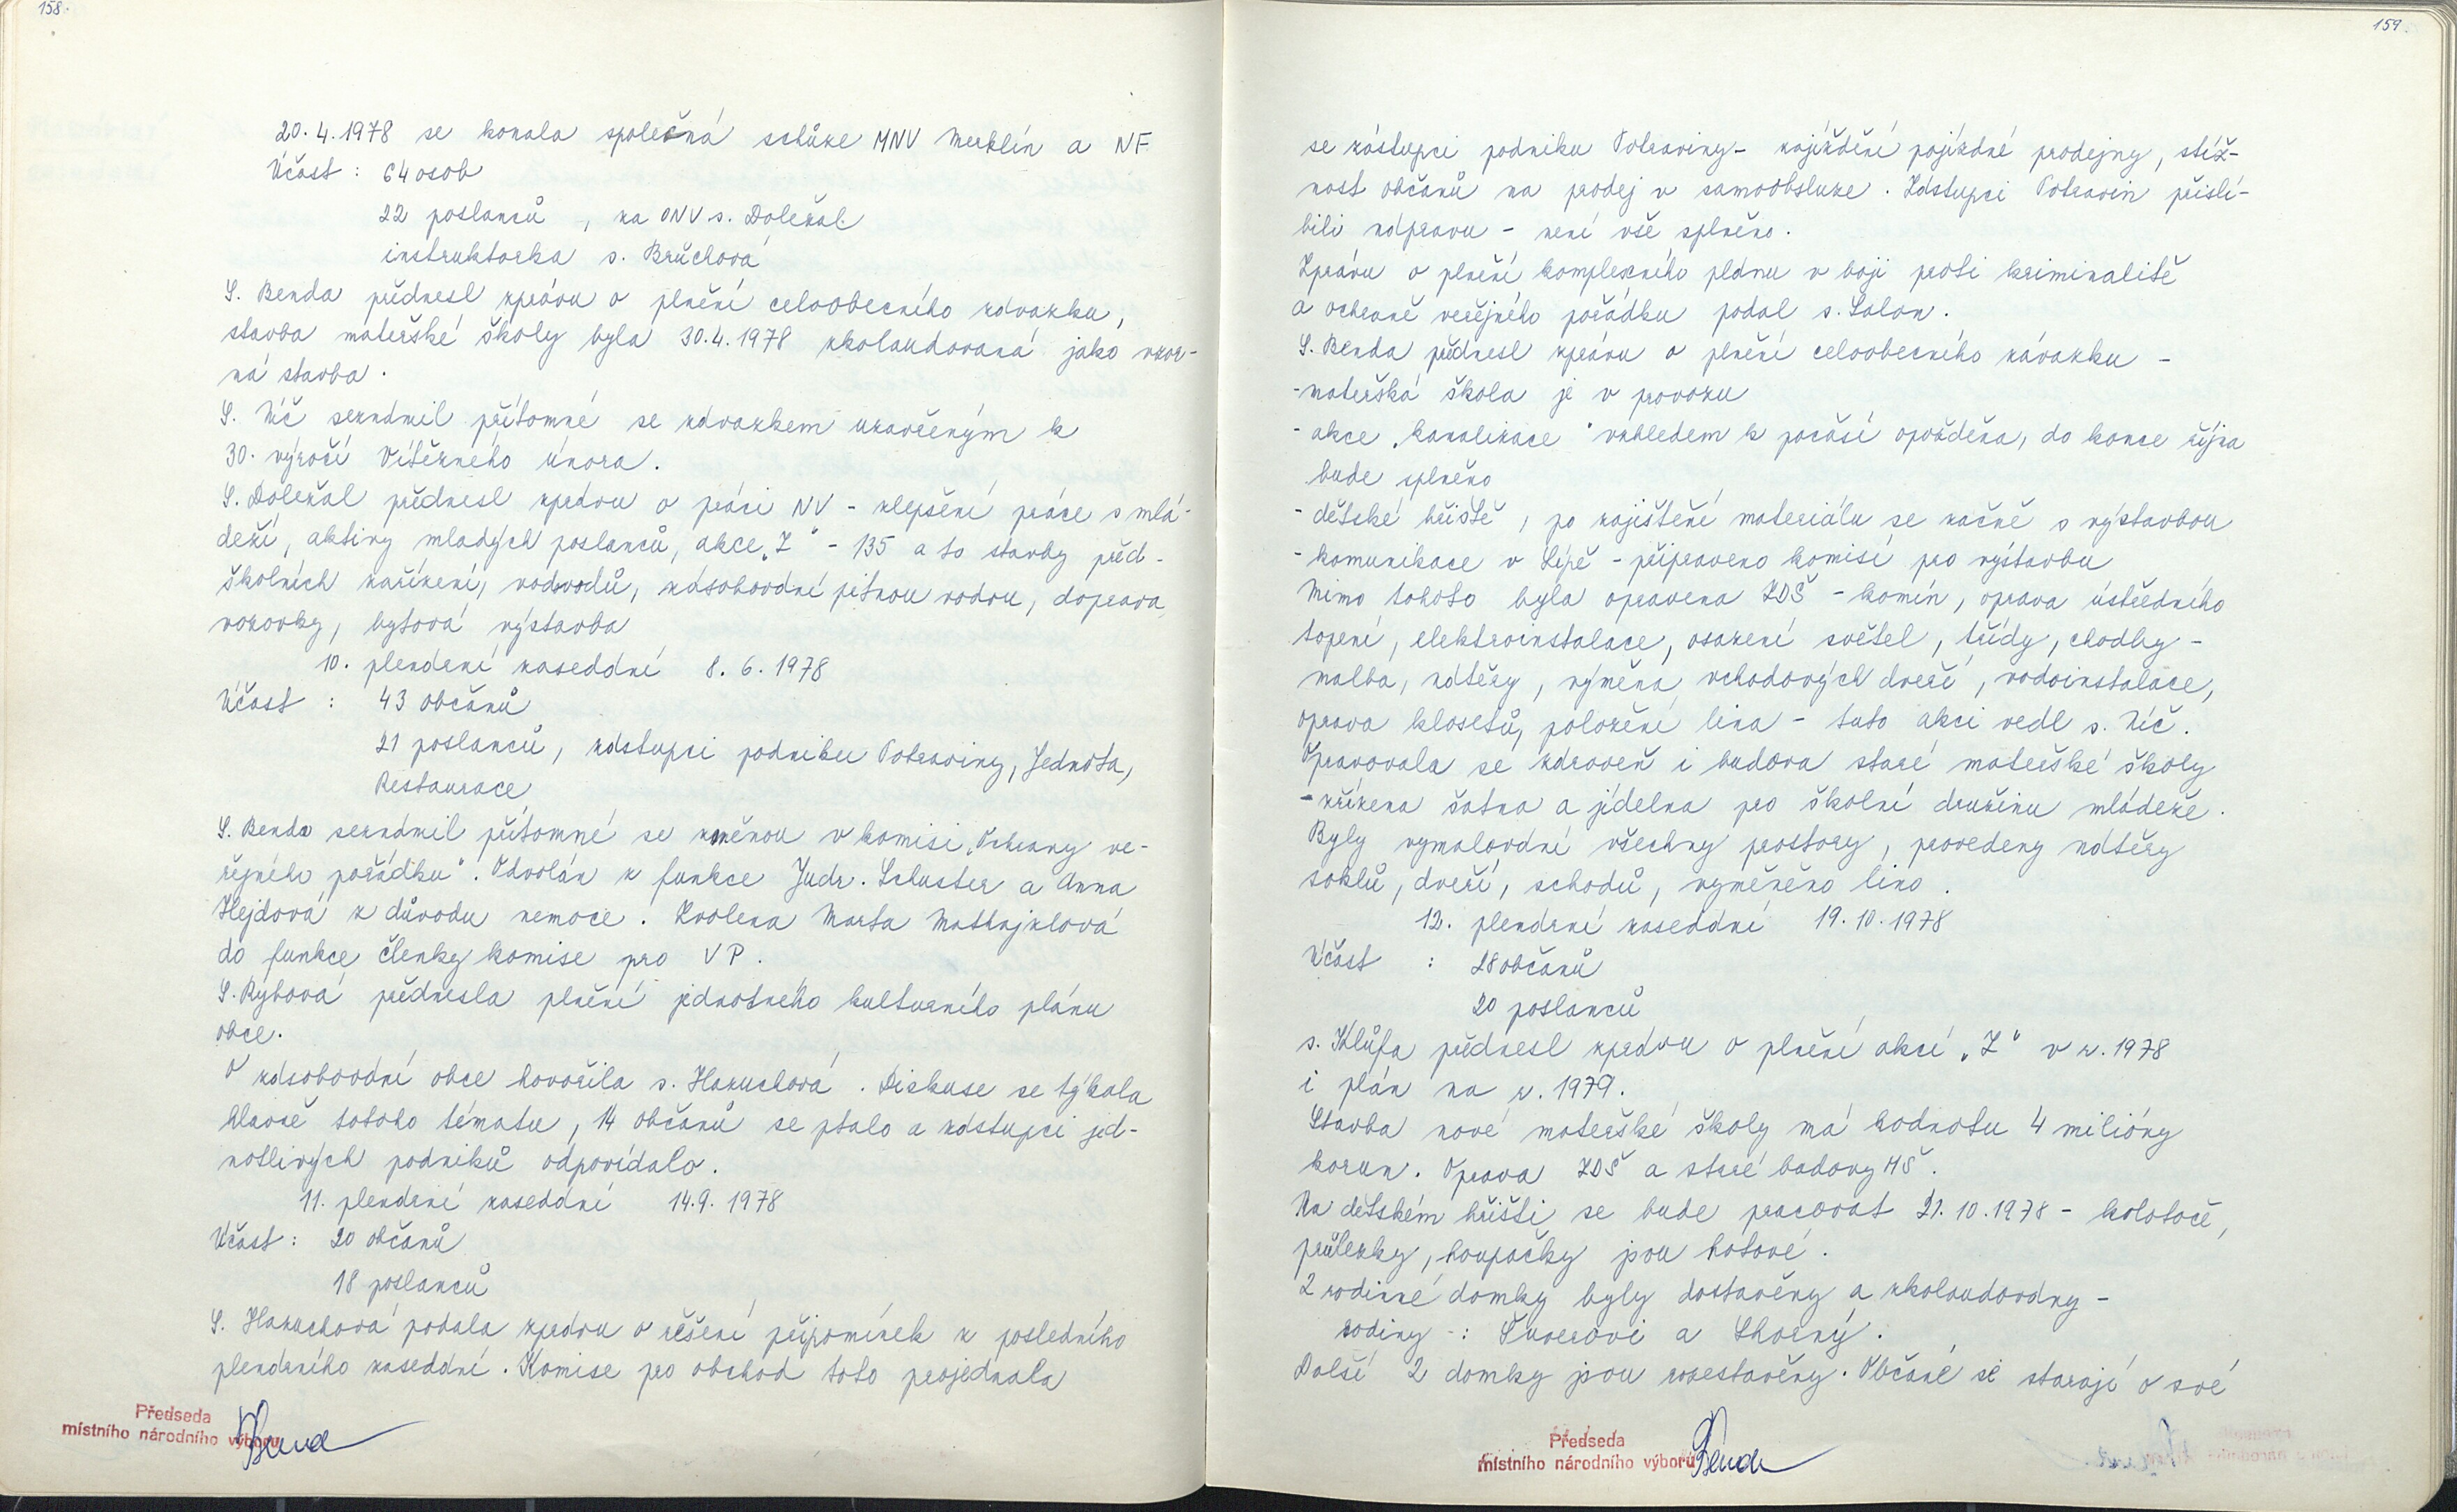 158.
20.4.1978 se konala společná schůze MNV Merklín a NF
Účast : 64 osob
22 poslanců , za ONV s. Doležal
instruktorka s. Brůchová
S. Benda přednesl zprávu o plnění celoobecního závazku,
stavba mateřské školy byla 30.4.1978 zkolaudovaná jako vzor-
ná stavba.
S. Níč seznámil přítomné se závazkem uzavřeným k
30. výročí Vítězného února.
S. Doležal přednesl zprávu o práci NV - zlepšení práce s mlá-
deží, aktivy mladých poslanců, akce „Z" - 135 a to stavby před-
školních zařízení, vodovodů, zásobování pitnou vodou, doprava,
vozovky, bytová výstavba
10. plenární zasedání 8. 6. 1978
Účast : 43 občanů
21 poslanců, zástupci podniku Potraviny, Jednota,
Restaurace
S. Benda seznámil přítomné se změnou v komisi „Ochrany ve-
řejného pořádku". Odvolán z funkce Judr. Schuster a Anna
Hejdová z důvodu nemoce. Zvolena Marta
do funkce členky komise pro VP.
S. Rybová přednesla plnění jednotného kulturního plánu
obce.
O zásobování obce hovořila s. Hakuchová. Diskuse se týkala
hlavně tohoto tématu, 14 občanů se ptalo a zástupci jed-
notlivých podniků odpovídalo.
11. plenární zasedání 14.9. 1978
Účast : 20 občanů
18 poslanců
S. Hakuchová podala zprávu o řešení připomínek z posledního
plenárního zasedání. Komise pro obchod toto projednala
Předseda
místního národního výboru
Benda
159.
se zástupci podniku Potraviny - zajíždění pojízdné prodejny, stíž-
nost občanů na prodej v samoobsluze. Zástupci Potravin přislí-
bili nápravu - není vše splněno.
Zprávu o plnění komplexního plánu v boji proti kriminalitě
a ochraně veřejného pořádku podal s. Salon.
S. Benda přednesl zprávu o plnění celoobecního závazku -
- mateřská škola je v provozu
- akce „kanalizace" vzhledem k počasí opožděna, do konce října
bude splněno
- dětské hřiště, po zajištění materiálu se začně s výstavbou
- komunikace v Lípě - připraveno komisí pro výstavbu
Mimo tohoto byla opravena ZDŠ - komín, oprava ústředního
topení, elektroinstalace, osazení světel, třídy, chodby -
malba, nátěry, výměna vchodových dveří, vodoinstalace,
oprava klosetů, položení lina - tuto akci vedl s. Níč.
Opravovala se zároveň i budova staré mateřské školy
- zřízena šatna a jídelna pro školní družinu mládeže.
Byly vymalování všechny prostory, provedeny nátěry
soklů, dveří, schodů, vyměněno lino.
12. plenární zasedání 19.10.1978
Účast : 28 občanů
20 poslanců
s. Klůfa přednesl zprávu o plnění akcí „Z" v r. 1978
i plán na r. 1979.
Stavba nové mateřské školy má hodnotu 4 milióny
korun. Oprava ZDŠ a staré budovy MŠ.
Na dětském hřišti se bude pracovat 21.10.1978 - kolotoče,
průlezky, houpačky jsou hotové.
2 rodinné domky byly dostavěny a zkolaudovány -
rodiny : Šuverovi a Shorný.
Další 2 domky jsou rozestavěny. Občané se starají o své
Předseda
místního národního výboru
Benda